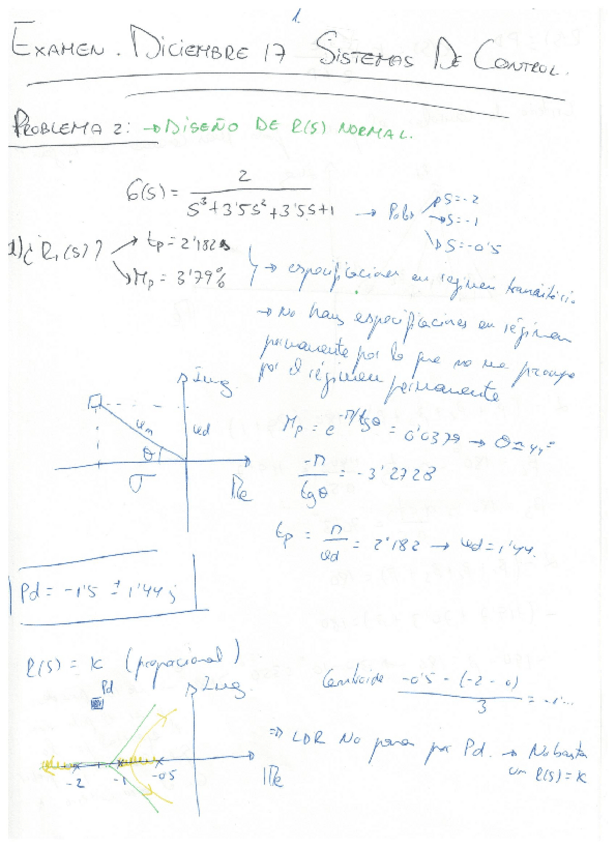 1.
EXAMEN. DICIEMBRE 17 SISTEMAS DE CONTROL.
PROBLEMA 2: → DISEÑO DE R(S) NORMAL.
G(s) = 2 / (s³+3'5s²+3'5s+1) → Polos
s=-2
s=-1
s=-0'5
¿R₁(s)?
tp = 2'182s
Mp = 3'79%
→ especificaciones en régimen transitorio
→ No hay especificaciones en régimen
permanente por lo que no me preocupo
por el régimen permanente
Img
ωn
ωd
θ
σ
Re
Mp = e^(-π/tgθ) = 0'0379 → θ =
-π / tgθ = -3'2728
tp = π / ωd = 2'182 → ωd = 1'44.
Pd = -1'5 ± 1'44j
R(s) = K (proporcional)
Pd
Img
-2 -1 -0'5
Re
Centroide -0'5 - (-2 - 0) / 3 = -1'...
⇒ LDR No pasa por Pd. → No basta
un R(s)=K